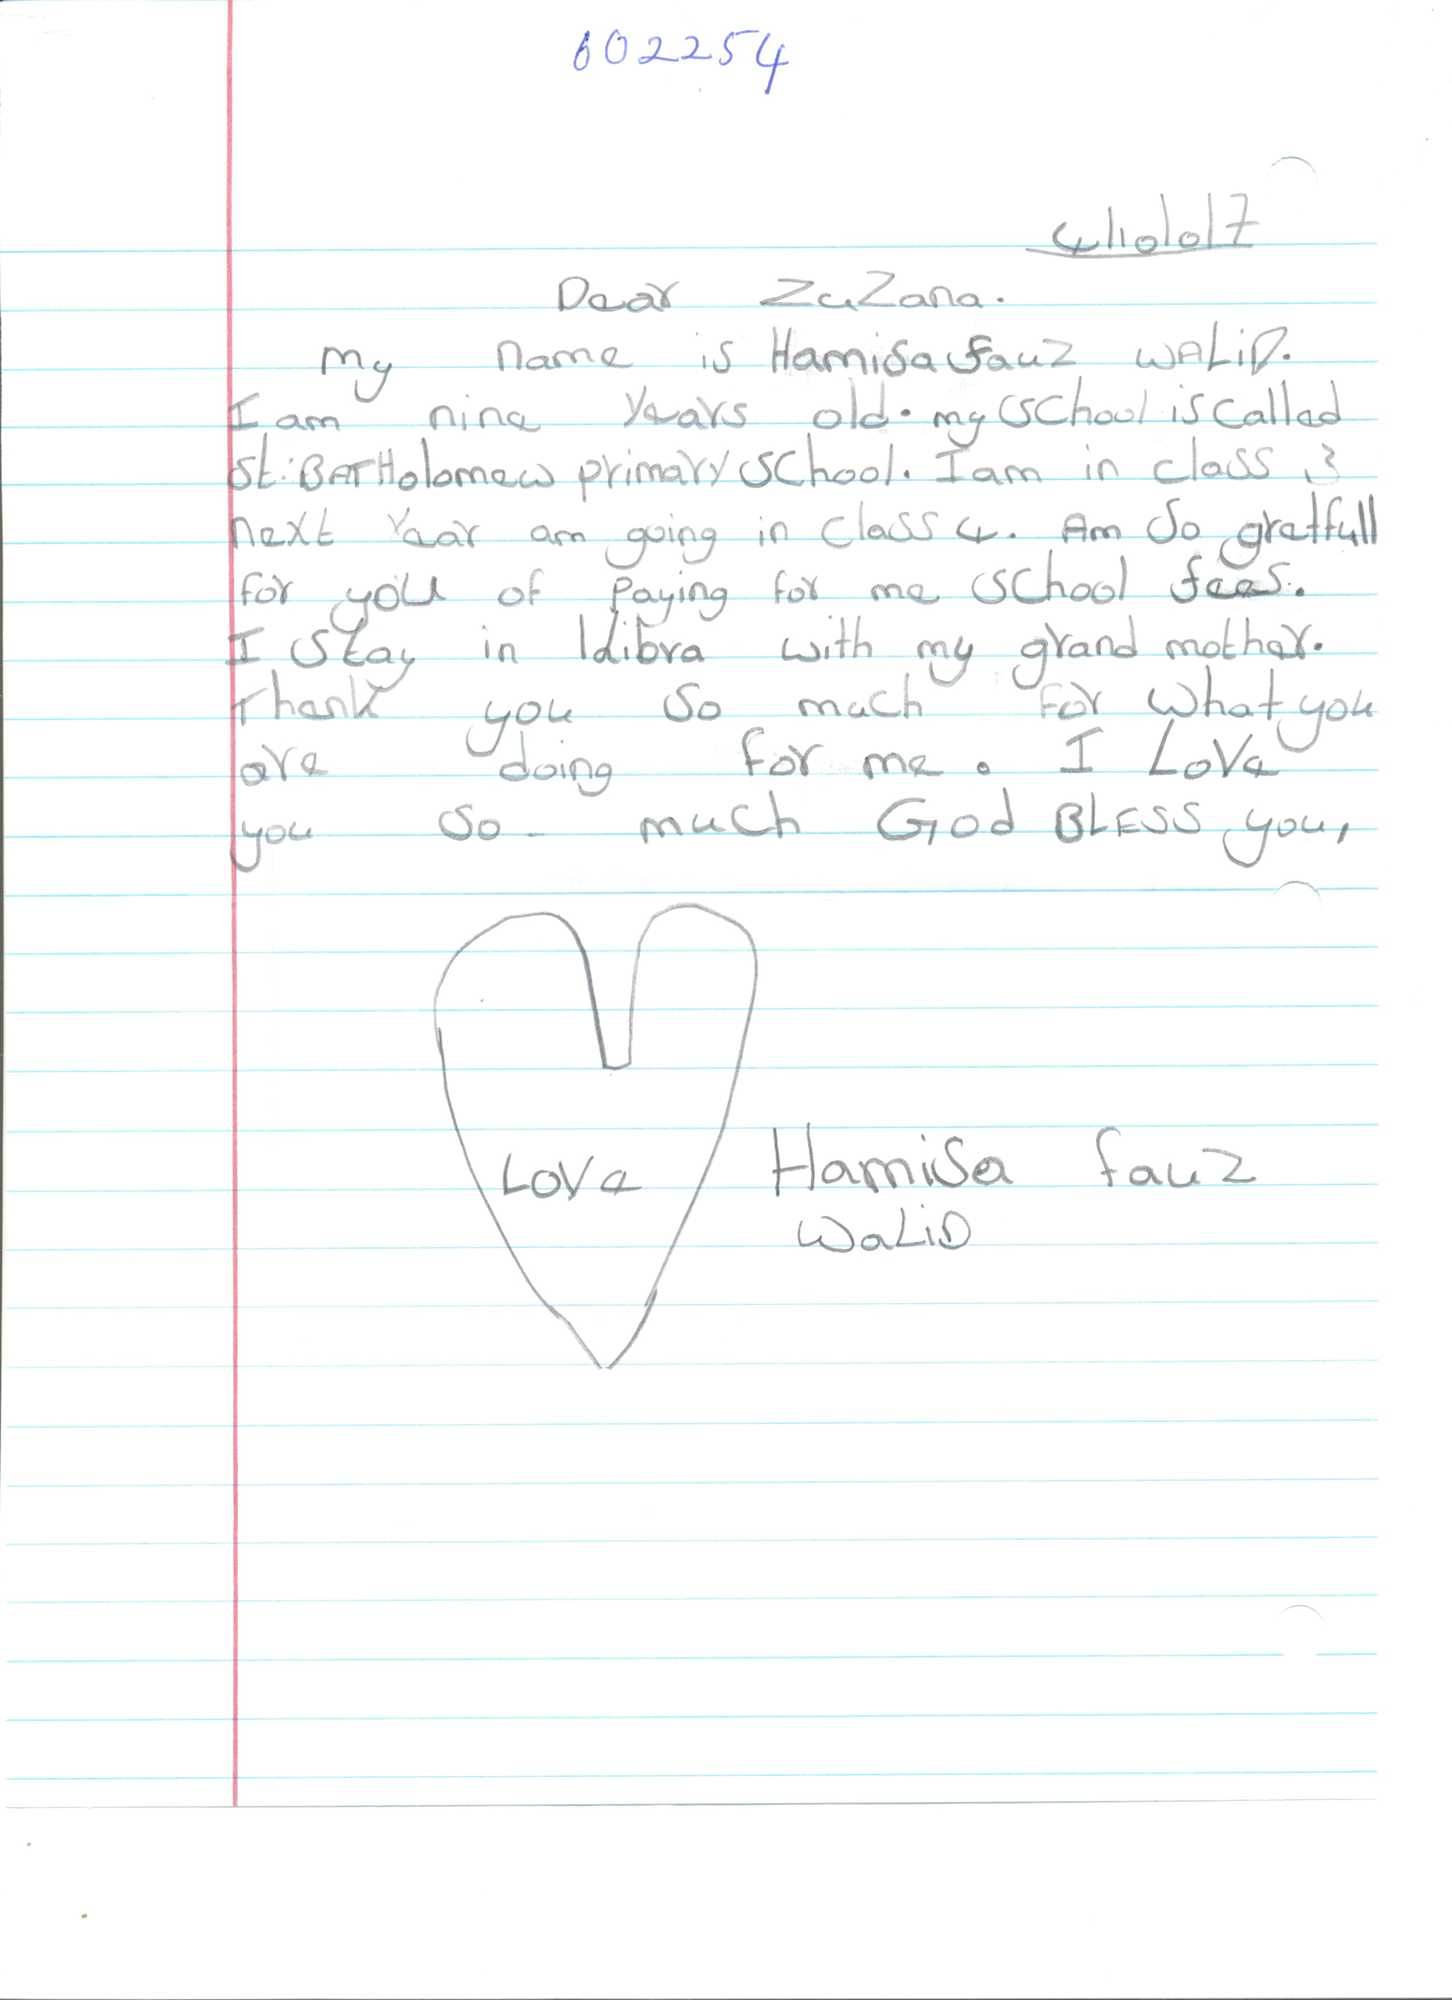 602254
4/10/017
Dear ZuZana.
My name is Hamisa fauz WALiD.
I am nine years old. my school is called
St. BARTHolomew primary school. I am in class 3
next year am going in class 4. Am so gratfull
for you of paying for me school fees.
I stay in Kibra with my grand mother.
Thank you so much for what you
are doing for me. I Love
you so much God BLESS you,
Love
Hamisa fauz
WaLiD